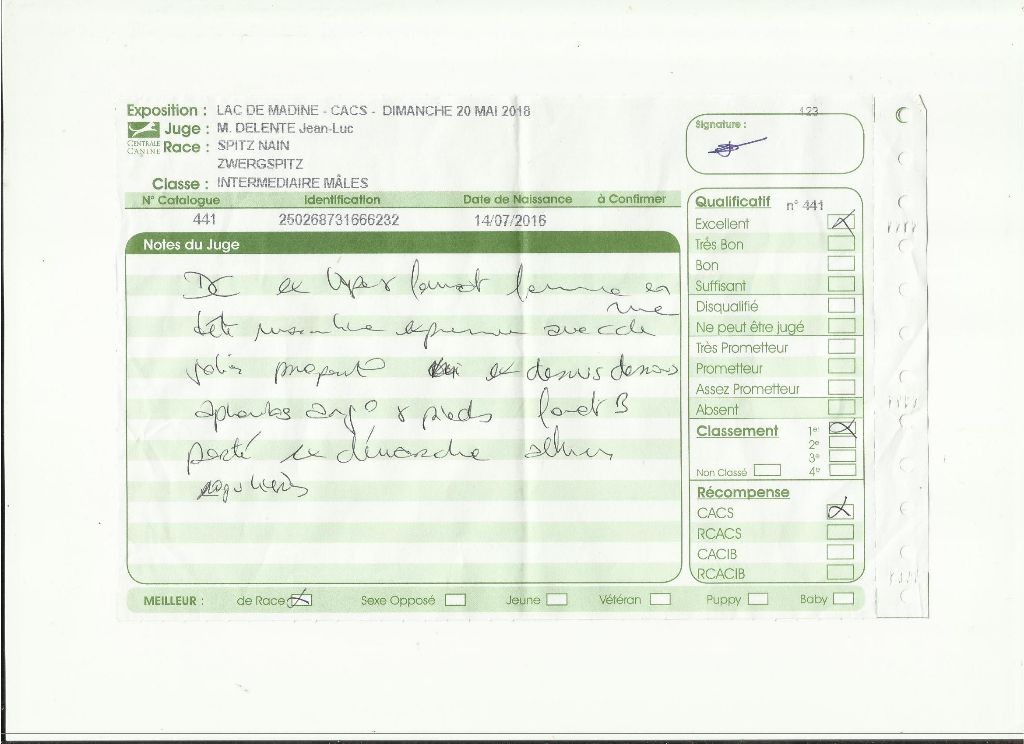 123
Exposition : LAC DE MADINE - CACS - DIMANCHE 20 MAI 2018
Juge : M. DELENTE Jean-Luc
CENTRALE CANINE
Race : SPITZ NAIN
ZWERGSPITZ
Classe : INTERMEDIAIRE MÂLES
Signature :
N° Catalogue Identification Date de Naissance à Confirmer
441 250268731666232 14/07/2016
Notes du Juge
ex type format
tête expression avec de
jolies ex dessus dessous
aplombs ang° & pieds fouet B
porté ex démarche allures
régulières
Qualificatif n° 441
Excellent
Très Bon
Bon
Suffisant
Disqualifié
Ne peut être jugé
Très Prometteur
Prometteur
Assez Prometteur
Absent
Classement 1er
2e
3e
Non Classé 4e
Récompense
CACS
RCACS
CACIB
RCACIB
MEILLEUR : de Race Sexe Opposé Jeune Vétéran Puppy Baby